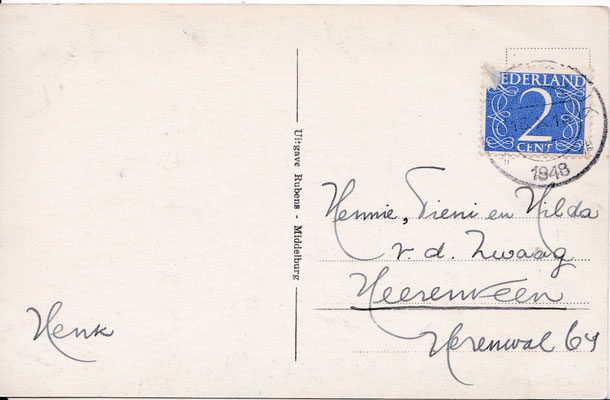 NEDERLAND
2
CENT
1948
Uitgave Rubens - Middelburg
Hennie, Tieni en Hilda
v. d. Zwaag
Heerenveen
Herenwal 64
Henk